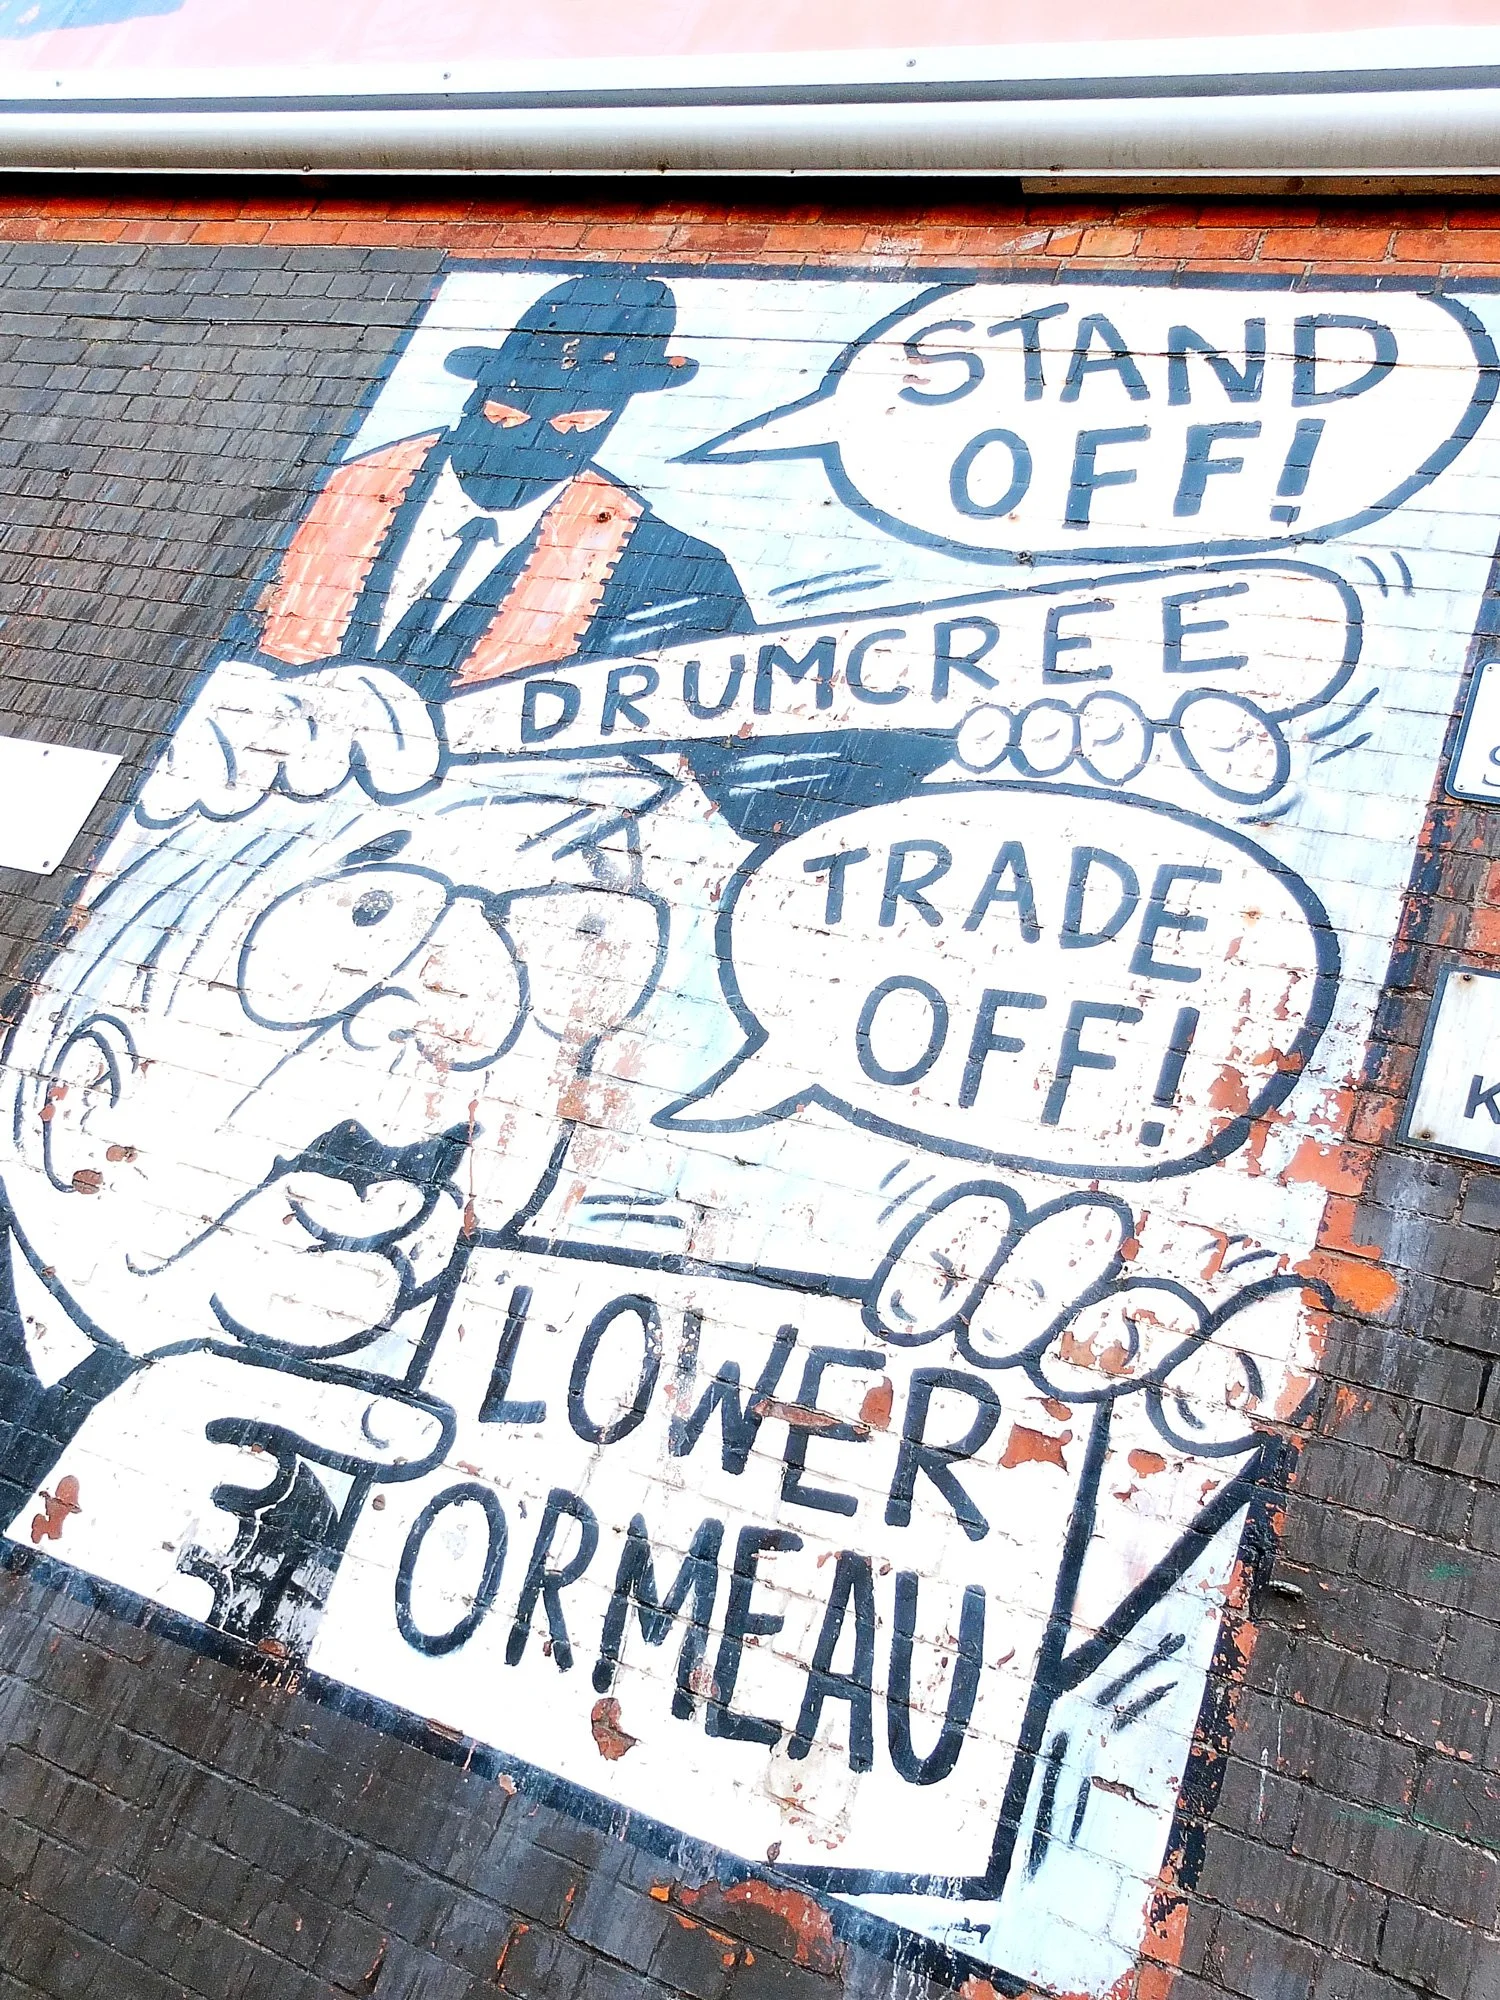 STAND
OFF!
DRUMCREE
TRADE
OFF!
LOWER
ORMEAU
S
K